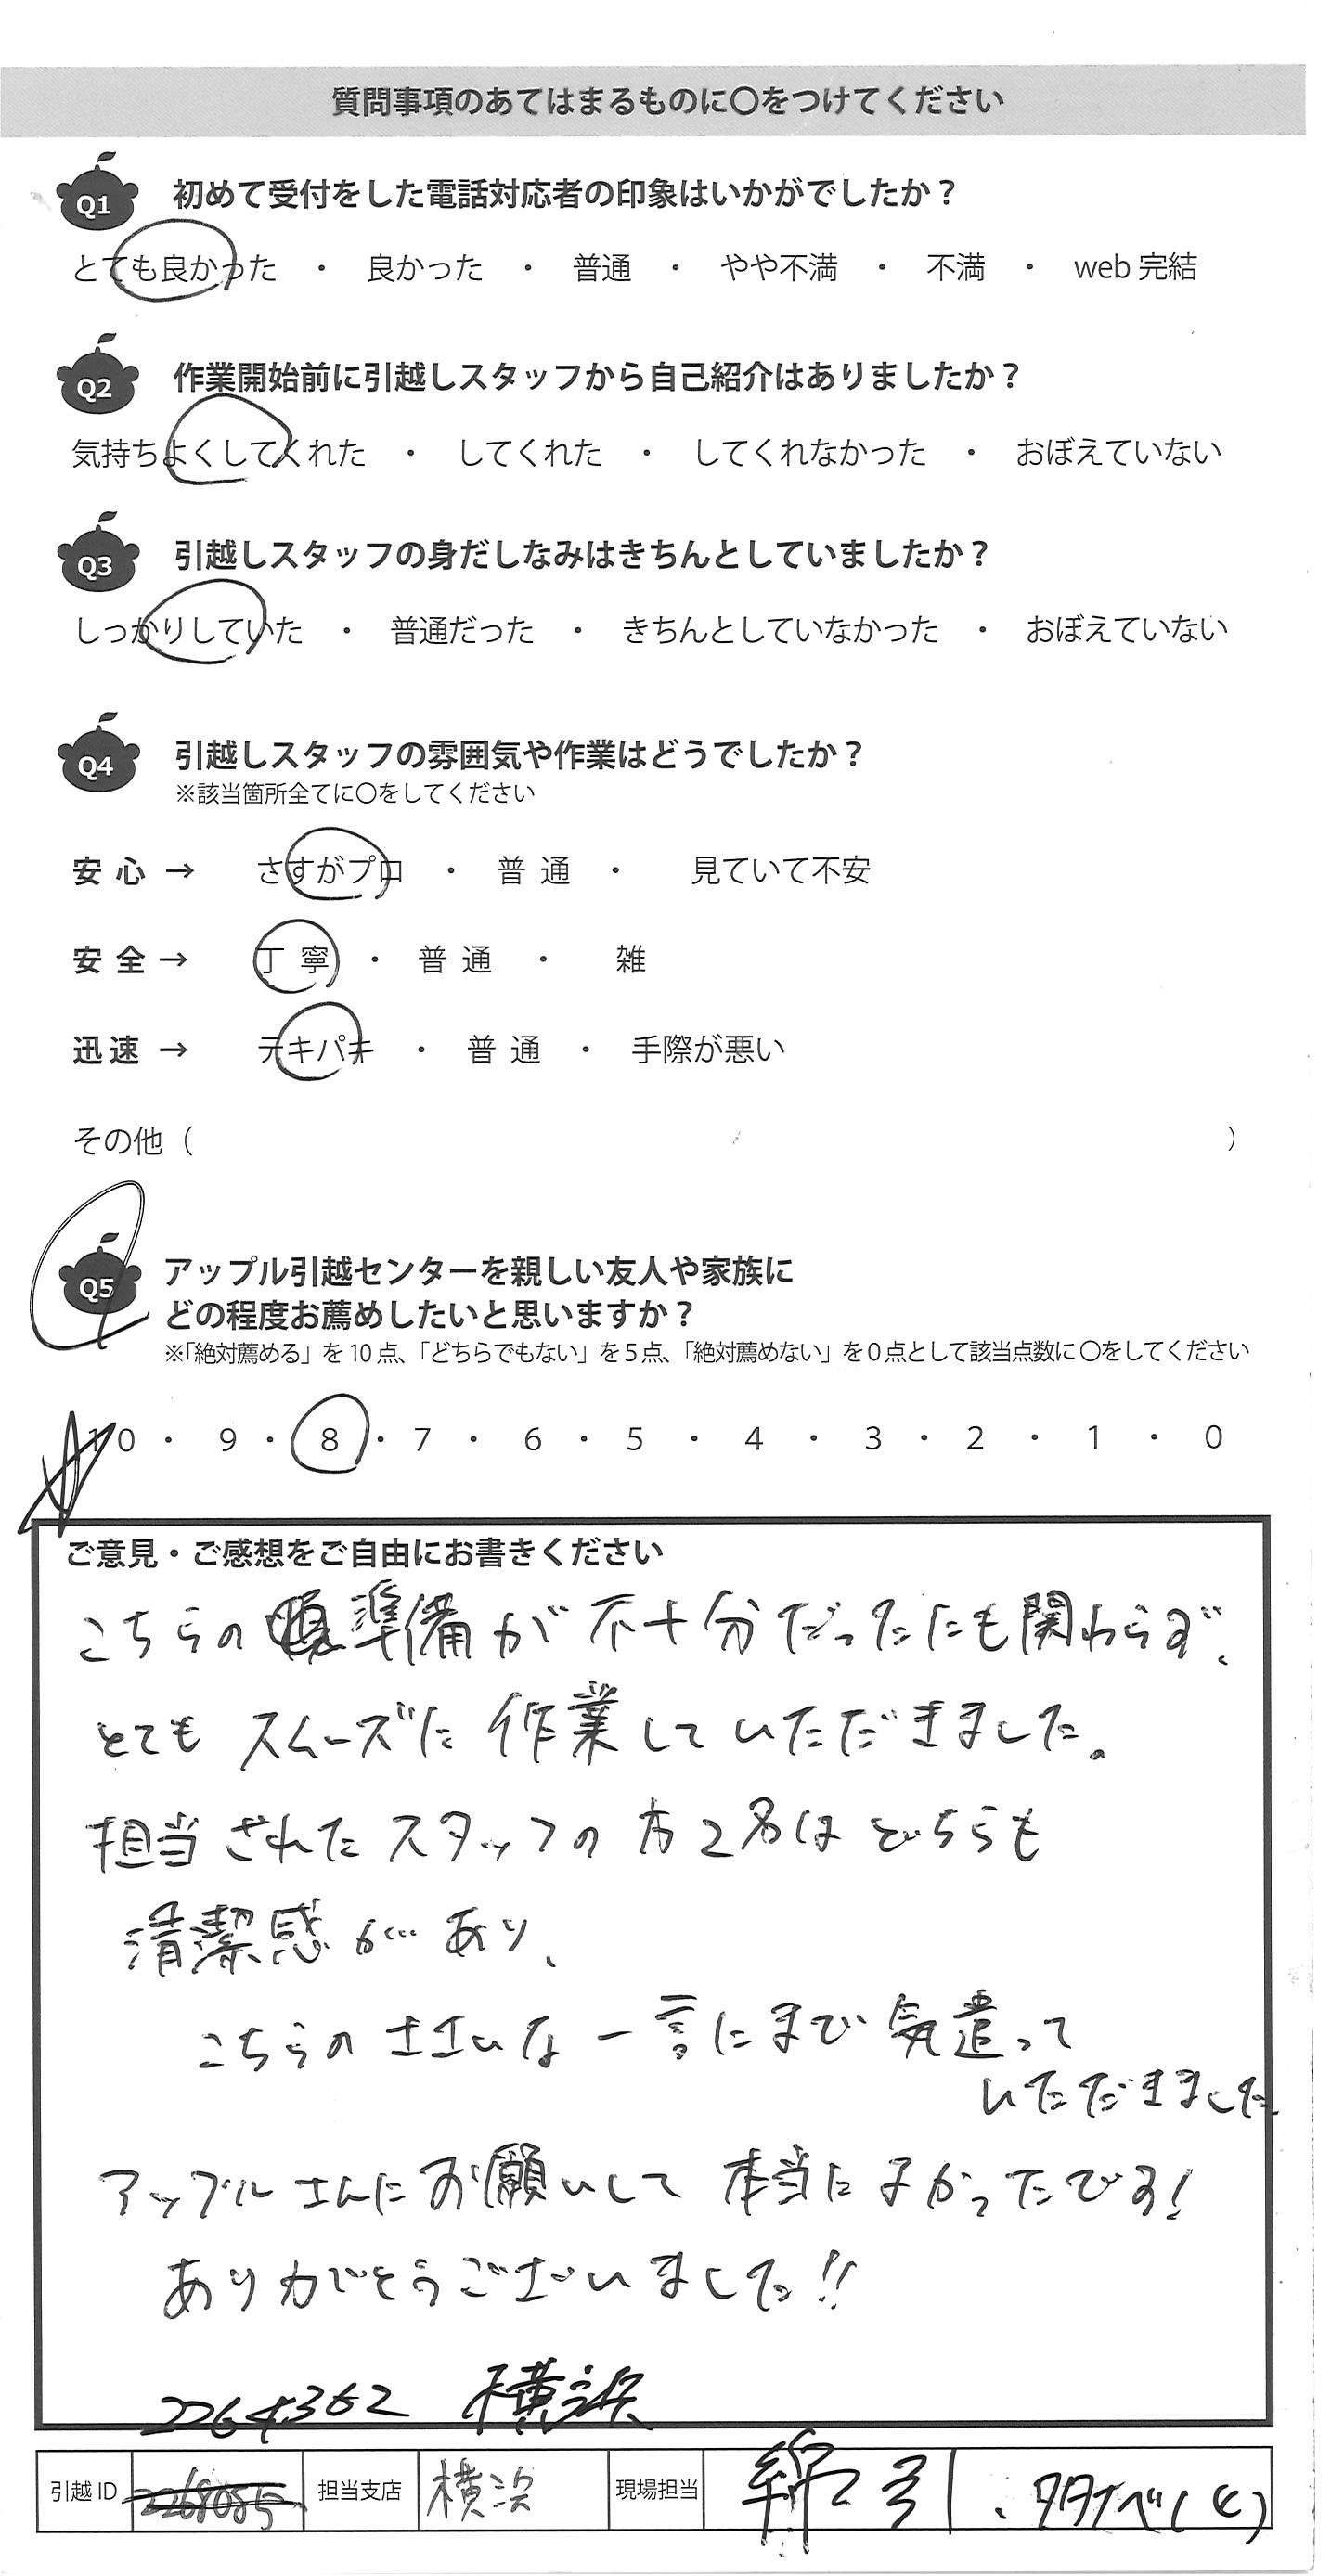 質問事項のあてはまるものに〇をつけてください
Q1 初めて受付をした電話対応者の印象はいかがでしたか？
とても良かった ・ 良かった ・ 普通 ・ やや不満 ・ 不満 ・ web 完結
Q2 作業開始前に引越しスタッフから自己紹介はありましたか？
気持ちよくしてくれた ・ してくれた ・ してくれなかった ・ おぼえていない
Q3 引越しスタッフの身だしなみはきちんとしていましたか？
しっかりしていた ・ 普通だった ・ きちんとしていなかった ・ おぼえていない
Q4 引越しスタッフの雰囲気や作業はどうでしたか？
※該当箇所全てに〇をしてください
安心 → さすがプロ ・ 普通 ・ 見ていて不安
安全 → 丁寧 ・ 普通 ・ 雑
迅速 → テキパキ ・ 普通 ・ 手際が悪い
その他（ ）
Q5 アップル引越センターを親しい友人や家族に
どの程度お薦めしたいと思いますか？
※「絶対薦める」を 10 点、「どちらでもない」を 5 点、「絶対薦めない」を 0 点として該当点数に〇をしてください
10 ・ 9 ・ 8 ・ 7 ・ 6 ・ 5 ・ 4 ・ 3 ・ 2 ・ 1 ・ 0
ご意見・ご感想をご自由にお書きください
こちらの準備が不十分だったにも関わらず、
とてもスムーズに作業していただきました。
担当されたスタッフの方2名はどちらも
清潔感があり、
こちらのささいな一言にまで気遣って
いただきました
アップルさんにお願いして本当によかったです！
ありがとうございました!!
2264362 横浜
引越 ID 2268085 担当支店 横浜 現場担当 綿引、